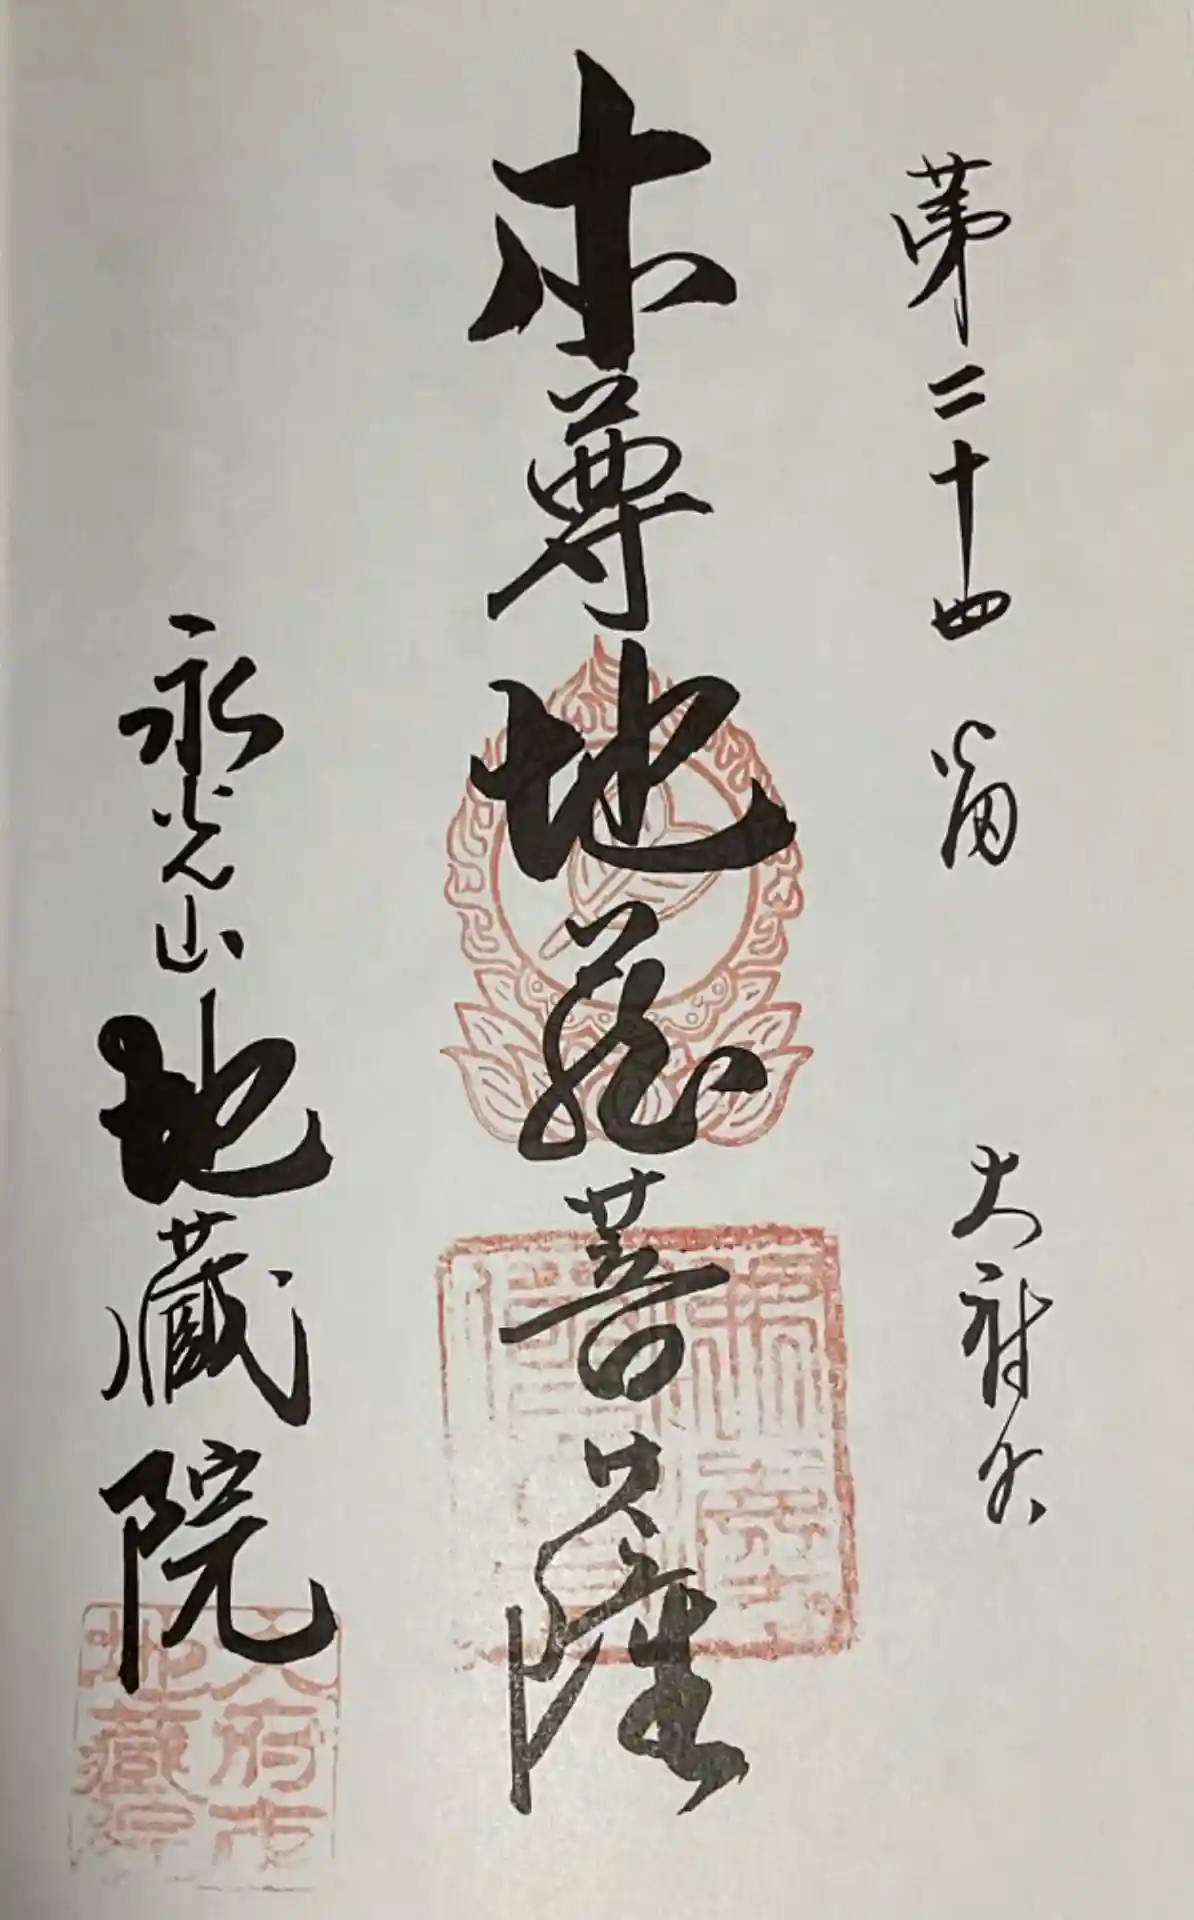 第二十四番　大府市
本尊地蔵菩薩
永光山地蔵院
大府市
地藏院